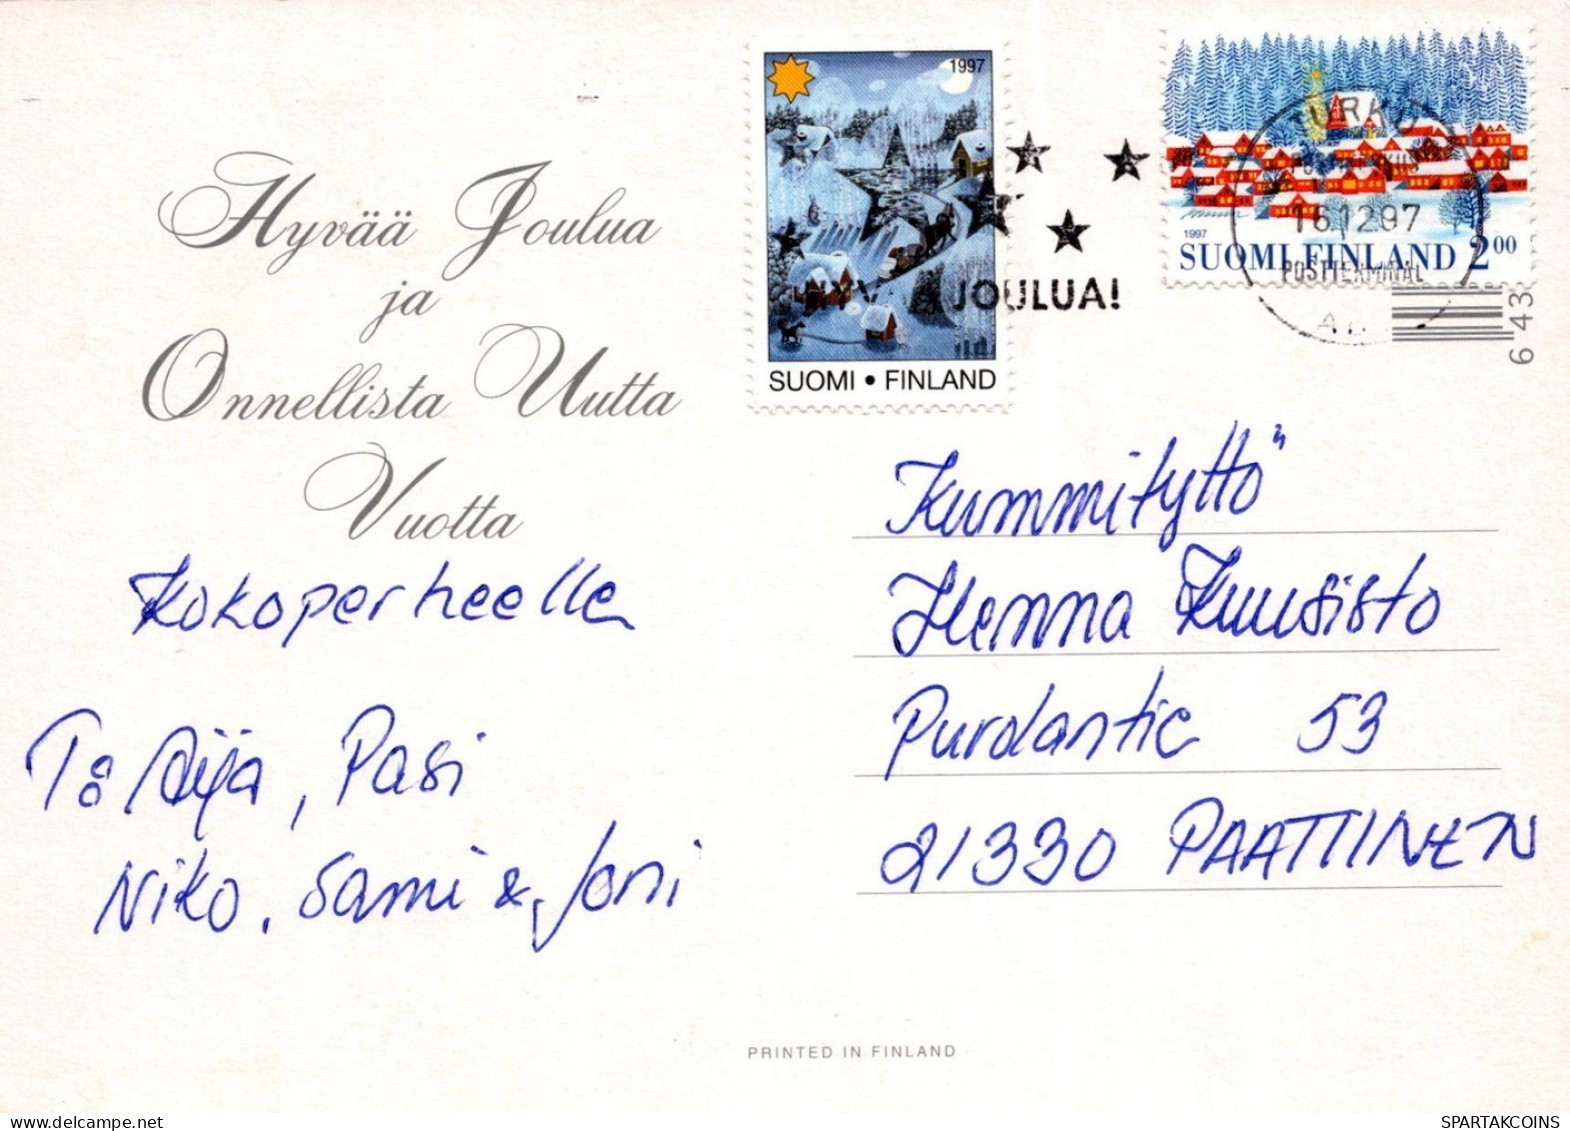 1997
SUOMI • FINLAND
HYVÄÄ JOULUA!
1997
SUOMI FINLAND 2.00
TURKU
16.12.97
POSTTERMINAL
ÅBO
643
Hyvää Joulua
ja
Onnellista Uutta
Vuotta
Kokoperheelle
T: Aija, Pasi
Niko, Sami & Joni
Kummityttö
Henna Kuusisto
Purolantie 53
21330 PAATTINEN
PRINTED IN FINLAND
delcampe.net
SPARTAKCOINS